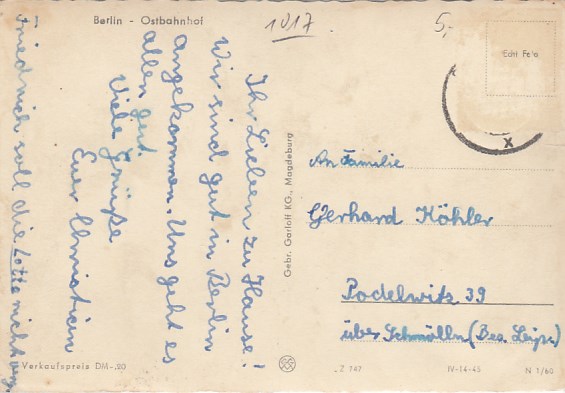 Berlin - Ostbahnhof
1017
5,-
Echt Foto
Ihr Lieben zu Hause!
Wir sind gut in Berlin
angekommen. Uns geht es
allen gut.
Viele Grüße
Euer Christian
Friedrich soll die Lotto nicht verg.
An Familie
Gerhard Köhler
Podelwitz 39
über Schmölln (Bez. Leipz.)
Gebr. Garloff KG., Magdeburg
Verkaufspreis DM -,20
Z 147
IV-14-45
N 1/60